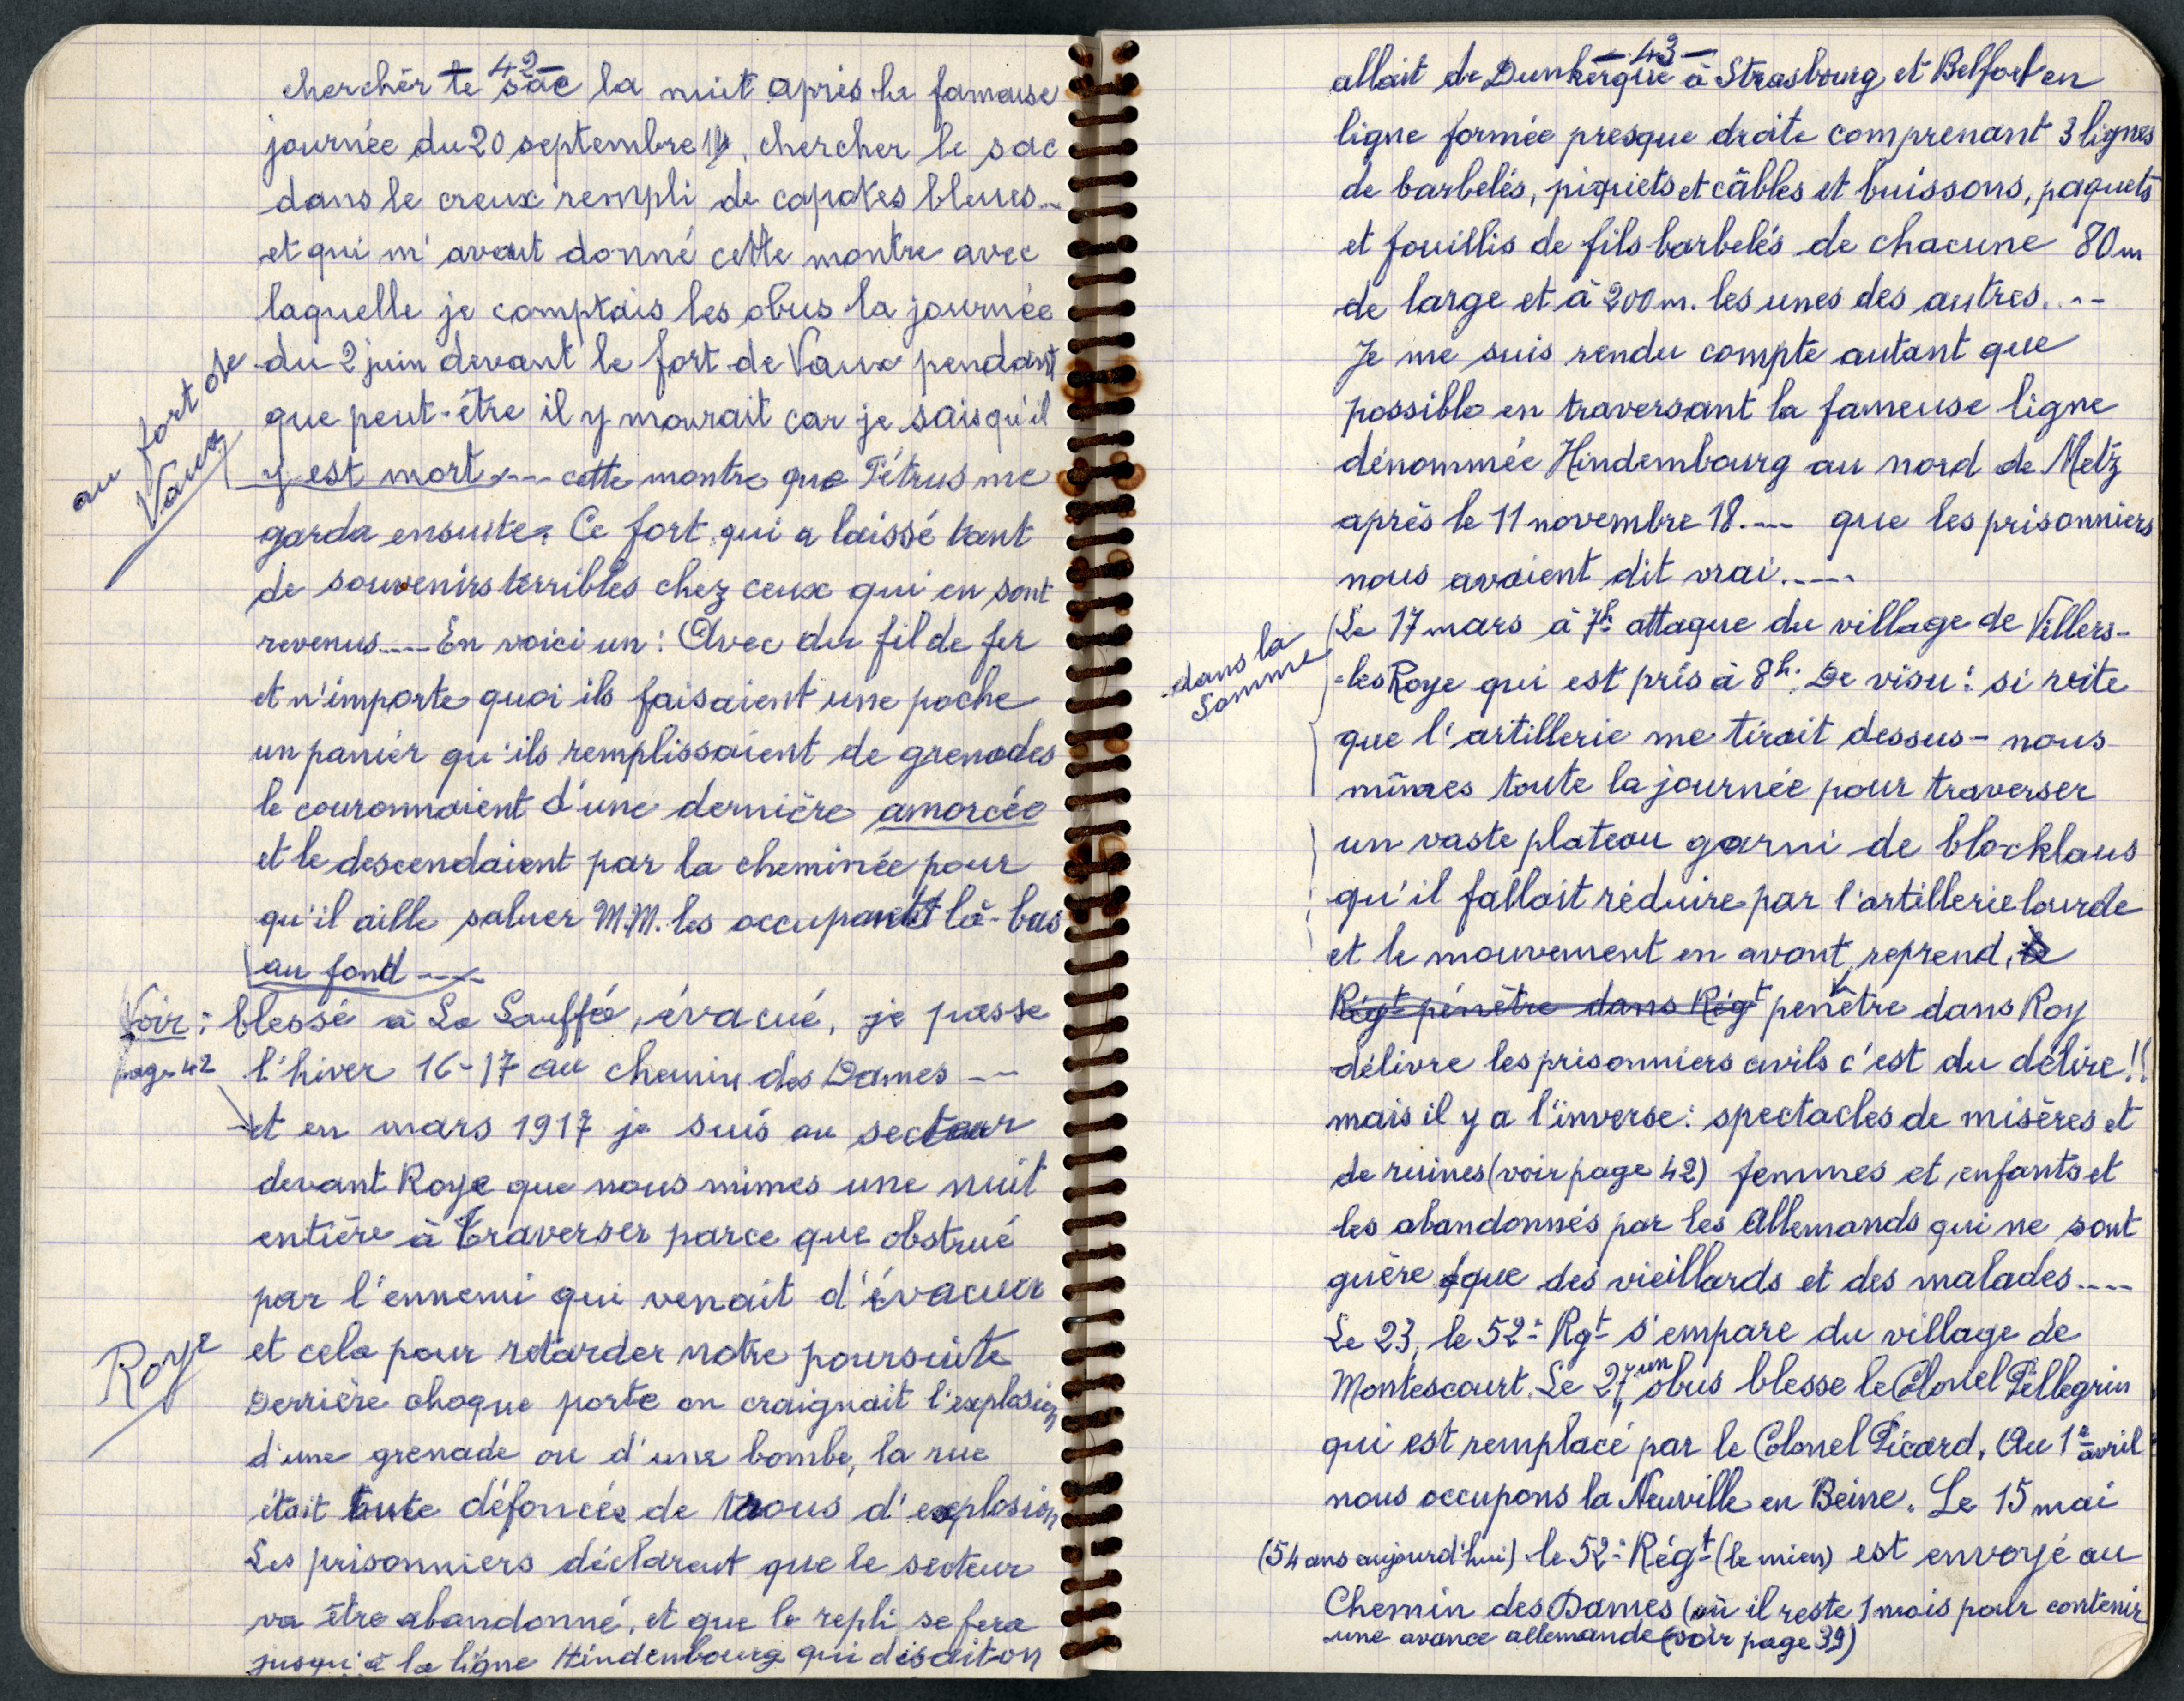 -42-
chercher le sac la nuit après la fameuse
journée du 20 septembre 14, chercher le sac
dans le creux rempli de capotes bleues...
et qui m'avait donné cette montre avec
laquelle je comptais les obus la journée
du 2 juin devant le fort de Vaux pendant
que peut-être il y mourait car je sais qu'il
y est mort.... cette montre que Pétrus me
garda ensuite. Ce fort qui a laissé tant
de souvenirs terribles chez ceux qui en sont
revenus..... En voici un : Avec du fil de fer
et n'importe quoi ils faisaient une poche
un panier qu'ils remplissaient de grenades
le couronnaient d'une dernière amorcée
et le descendaient par la cheminée pour
qu'il aille saluer M.M. les occupants là-bas
au fond ....
au fort de
Vaux
Voir :
page 42
blessé à La Lauffée, évacué, je passe
l'hiver 16-17 au chemin des Dames --
et en mars 1917 je suis au secteur
devant Roye que nous mimes une nuit
entière à traverser parce que obstrué
par l'ennemi qui venait d'évacuer
et cela pour retarder notre poursuite
Roye
Derrière chaque porte on craignait l'explosion
d'une grenade ou d'une bombe, la rue
était toute défoncée de trous d'explosion
Les prisonniers déclarent que le secteur
va être abandonné, et que le repli se fera
jusqu'à la ligne Hindenbourg qui disait-on
-43-
allait de Dunkerque à Strasbourg et Belfort en
ligne formée presque droite comprenant 3 lignes
de barbelés, piquets et câbles et buissons, paquets
et fouillis de fils barbelés de chacune 80m
de large et à 200 m. les unes des autres...
Je me suis rendu compte autant que
possible en traversant la fameuse ligne
dénommée Hindembourg au nord de Metz
après le 11 novembre 18.... que les prisonniers
nous avaient dit vrai.....
Le 17 mars à 7h attaque du village de Villers-
-les Roye qui est pris à 8h. De visu : si vite
dans la
Somme
que l'artillerie me tirait dessus - nous
mîmes toute la journée pour traverser
un vaste plateau garni de blocklaus
qu'il fallait réduire par l'artillerie lourde
et le mouvement en avant reprend, le
Régt pénètre dans Régt penètre dans Roy
délivre les prisonniers civils c'est du délire !!
mais il y a l'inverse : spectacles de misères et
de ruines (voir page 42) femmes et enfants et
les abandonnés par les Allemands qui ne sont
guère que des vieillards et des malades....
Le 23, le 52e Rgt s'empare du village de
Montescourt. Le 27 un obus blesse le Colonel Pellegrin
qui est remplacé par le Colonel Picard. Au 1e avril
nous occupons la Neuville en Beine. Le 15 mai
(54 ans aujourd'hui) le 52e Régt (le mien) est envoyé au
Chemin des Dames (où il reste 1 mois pour contenir
une avance allemande (voir page 39)